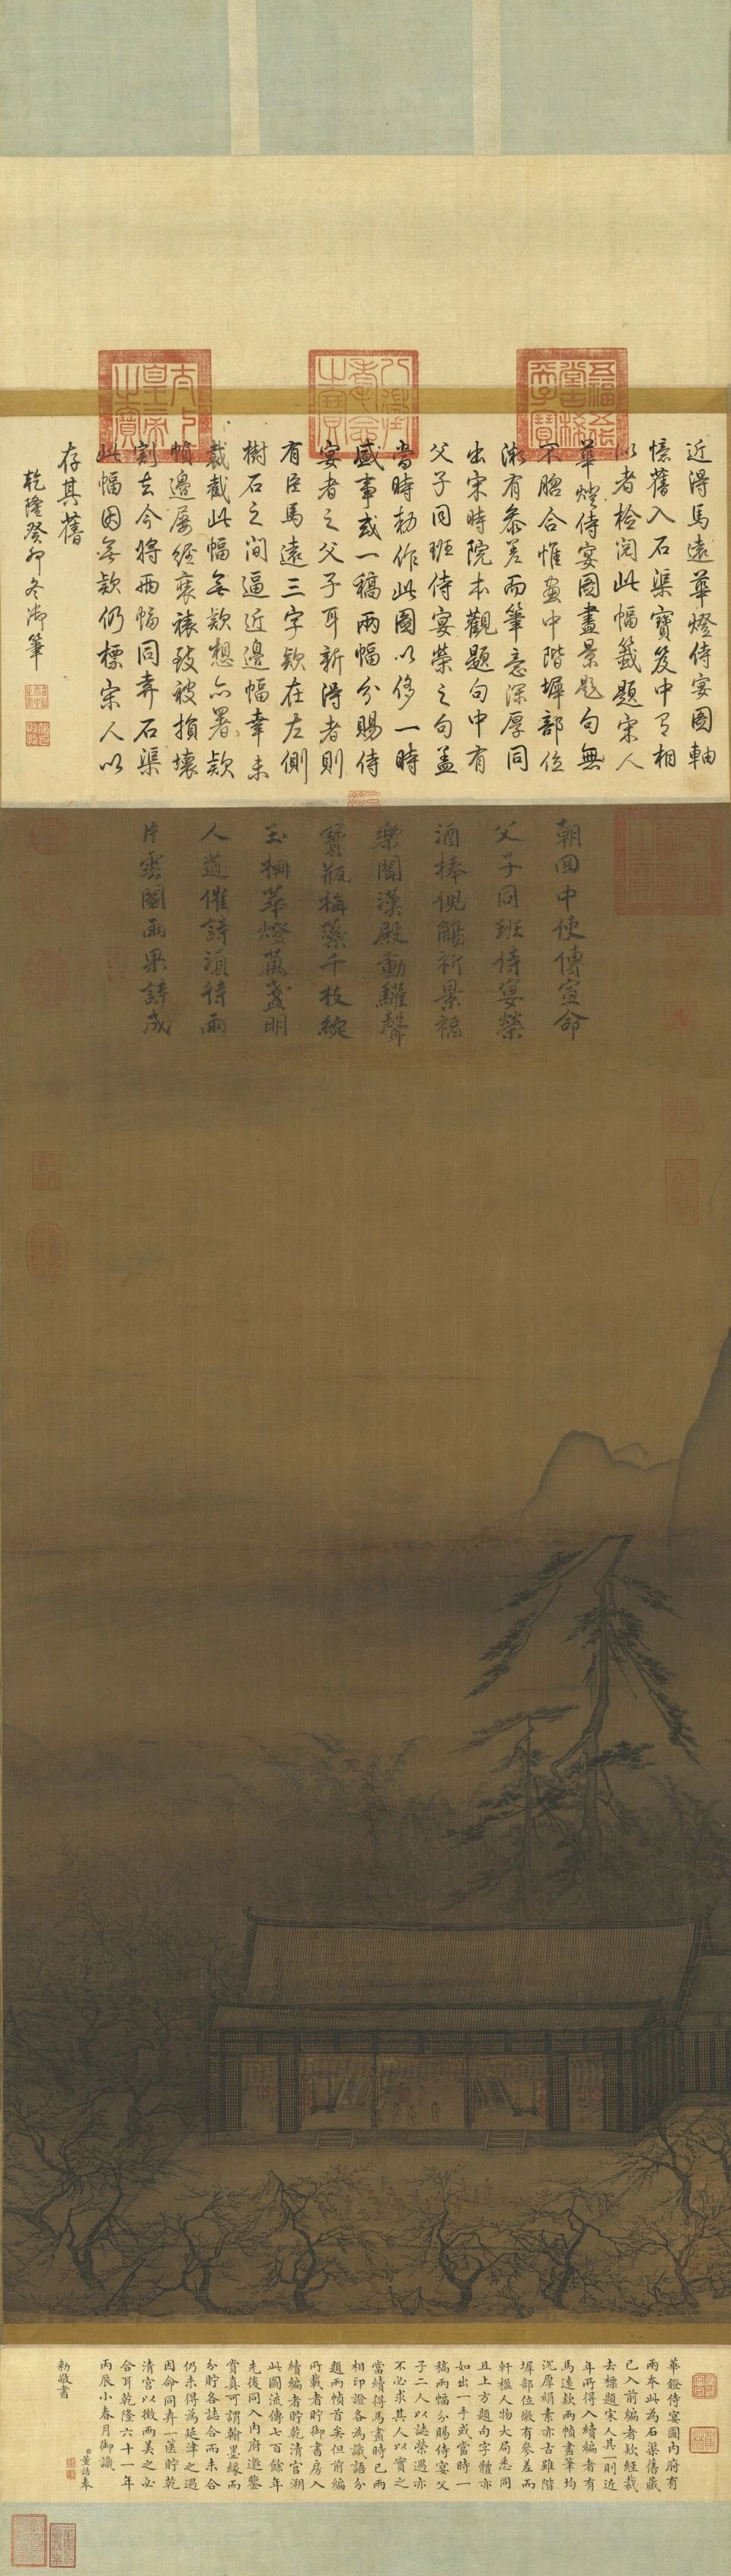 近得馬遠華燈侍宴圖軸
憶舊入石渠寶笈中有相
似者檢閱此幅籤題宋人
華燈侍宴圖畫景題句無
不脗合惟畫中階墀部位
微有參差而筆意深厚同
出宋時院本觀題句中有
父子同班侍宴榮之句蓋
當時勅作此圖以侈一時
盛事或一稿兩幅分賜侍
宴者之父子耳新得者則
有臣馬遠三字欵在左側
樹石之間逼近邊幅幸未
裁截此幅無欵想亦署欵
幀邊屢經裝裱致被損壞
割去今將兩幅同弆石渠
此幅因無欵仍標宋人以
存其舊
乾隆癸卯冬御筆
太上皇帝之寶
八徵耄念之寶
五福五代堂古稀天子寶
朝回中使傳宣命
父子同班侍宴榮
酒捧倪觴祈景福
樂聞漢殿動驩聲
寶瓶梅蘂千枝綻
玉柵華燈萬盞明
人道催詩須待雨
片雲閣雨果詩成
華鐙侍宴圖內府有
兩本此為石渠舊藏
已入前編者欵經裁
去標題宋人其一則近
年所得入續編者有
馬遠欵兩幀畫筆均
沉厚絹素亦古雖階
墀部位微有參差而
軒楹人物大局悉同
且上方題句字體亦
如出一手或當時一
稿兩幅分賜侍宴父
子二人以誌榮遇亦
不必求其人以實之
當續得馬畫時已兩
相印證各為識語分
題兩幀首矣但前編
所載者貯御書房入
續編者貯乾清宮溯
此圖流傳七百餘年
先後同入內府邀鑒
賞真可謂翰墨緣而
分貯各誌合而未合
仍未得為延津之遇
因命同弆一篋貯乾
清宮以徵兩美之必
合耳乾隆六十一年
丙辰小春月御識
臣董誥奉
勅敬書